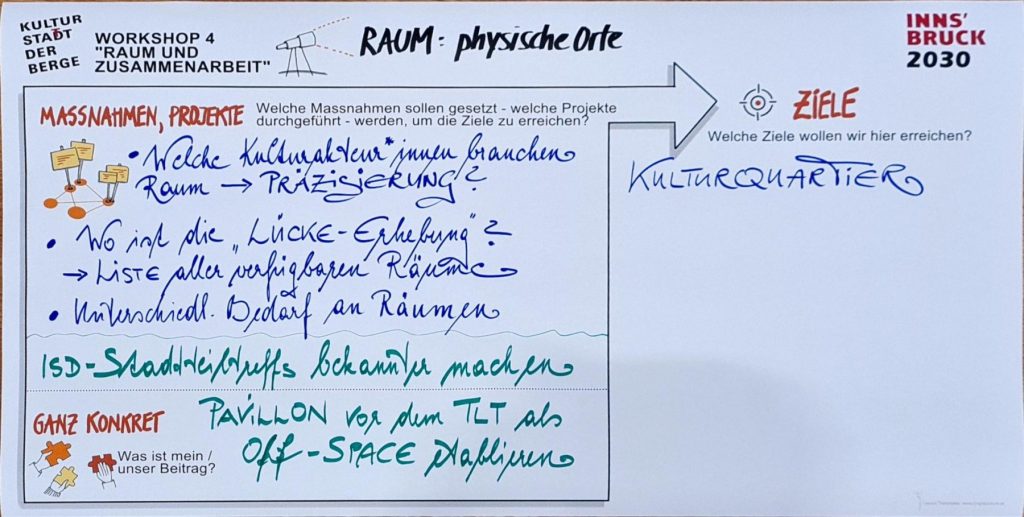 KULTUR
STADT
DER
BERGE
WORKSHOP 4
"RAUM UND
ZUSAMMENARBEIT"
RAUM: physische Orte
INNS'
BRUCK
2030
MASSNAHMEN, PROJEKTE
Welche Massnahmen sollen gesetzt - welche Projekte
durchgeführt - werden, um die Ziele zu erreichen?
• Welche Kulturakteur*innen brauchen
Raum → PRÄZISIERUNG?
• Wo ist die „LÜCKE-Erhebung"?
→ LISTE aller verfügbaren Räume
• Unterschiedl. Bedarf an Räumen
ISD-Stadtteiltreffs bekannter machen
GANZ KONKRET
Was ist mein /
unser Beitrag?
PAVILLON vor dem TLT als
Off-SPACE etablieren
ZIELE
Welche Ziele wollen wir hier erreichen?
KULTURQUARTIER